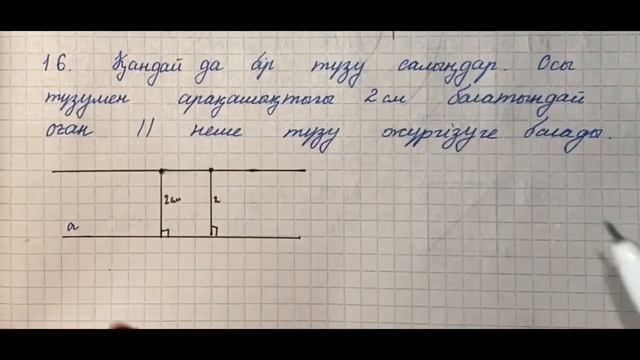 16. Қандай да бір түзу салыңдар. Осы
түзумен арақашықтығы 2 см болатындай
оған || неше түзу жүргізуге болады.
2 см 2
a